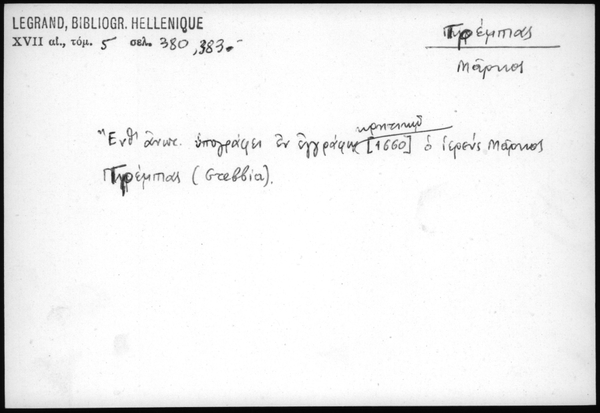 LEGRAND, BIBLIOGR. HELLENIQUE
XVII αἰ., τόμ. 5 σελ. 380, 383.
Γρέμπας
Μᾶρκος
Ἔνθ' ἄνωτ. ὑπογράφει ἐν ἐγγράφῳ κρητικῷ [1660] ὁ ἱερεὺς Μᾶρκος
Γρέμπας (Grebbia).